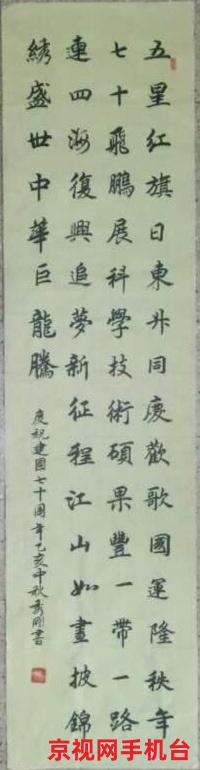 五星红旗日東升同慶歡歌國運隆秩年
七十飛鵬展科學技術碩果豐一帶一路
連四海復興追夢新征程江山如畫披錦
綉盛世中華巨龍騰
慶祝建國七十周年乙亥中秋秀剛書
京视网手机台